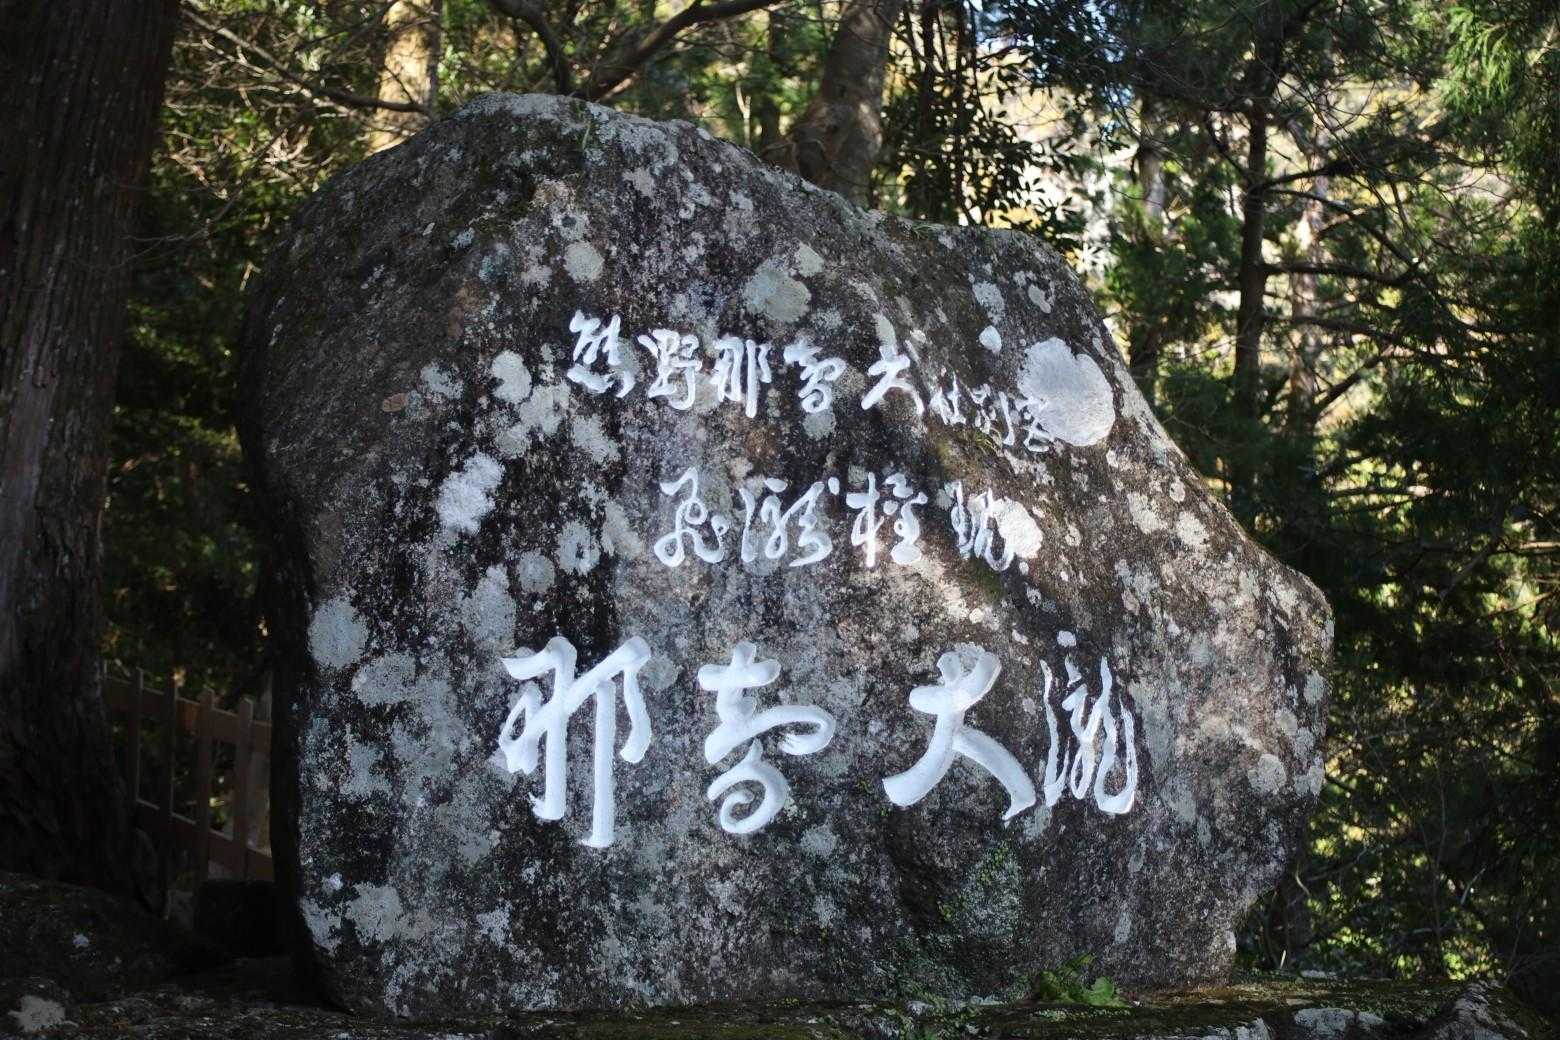 熊野那智大社別宮
飛瀧権現
那智大瀧